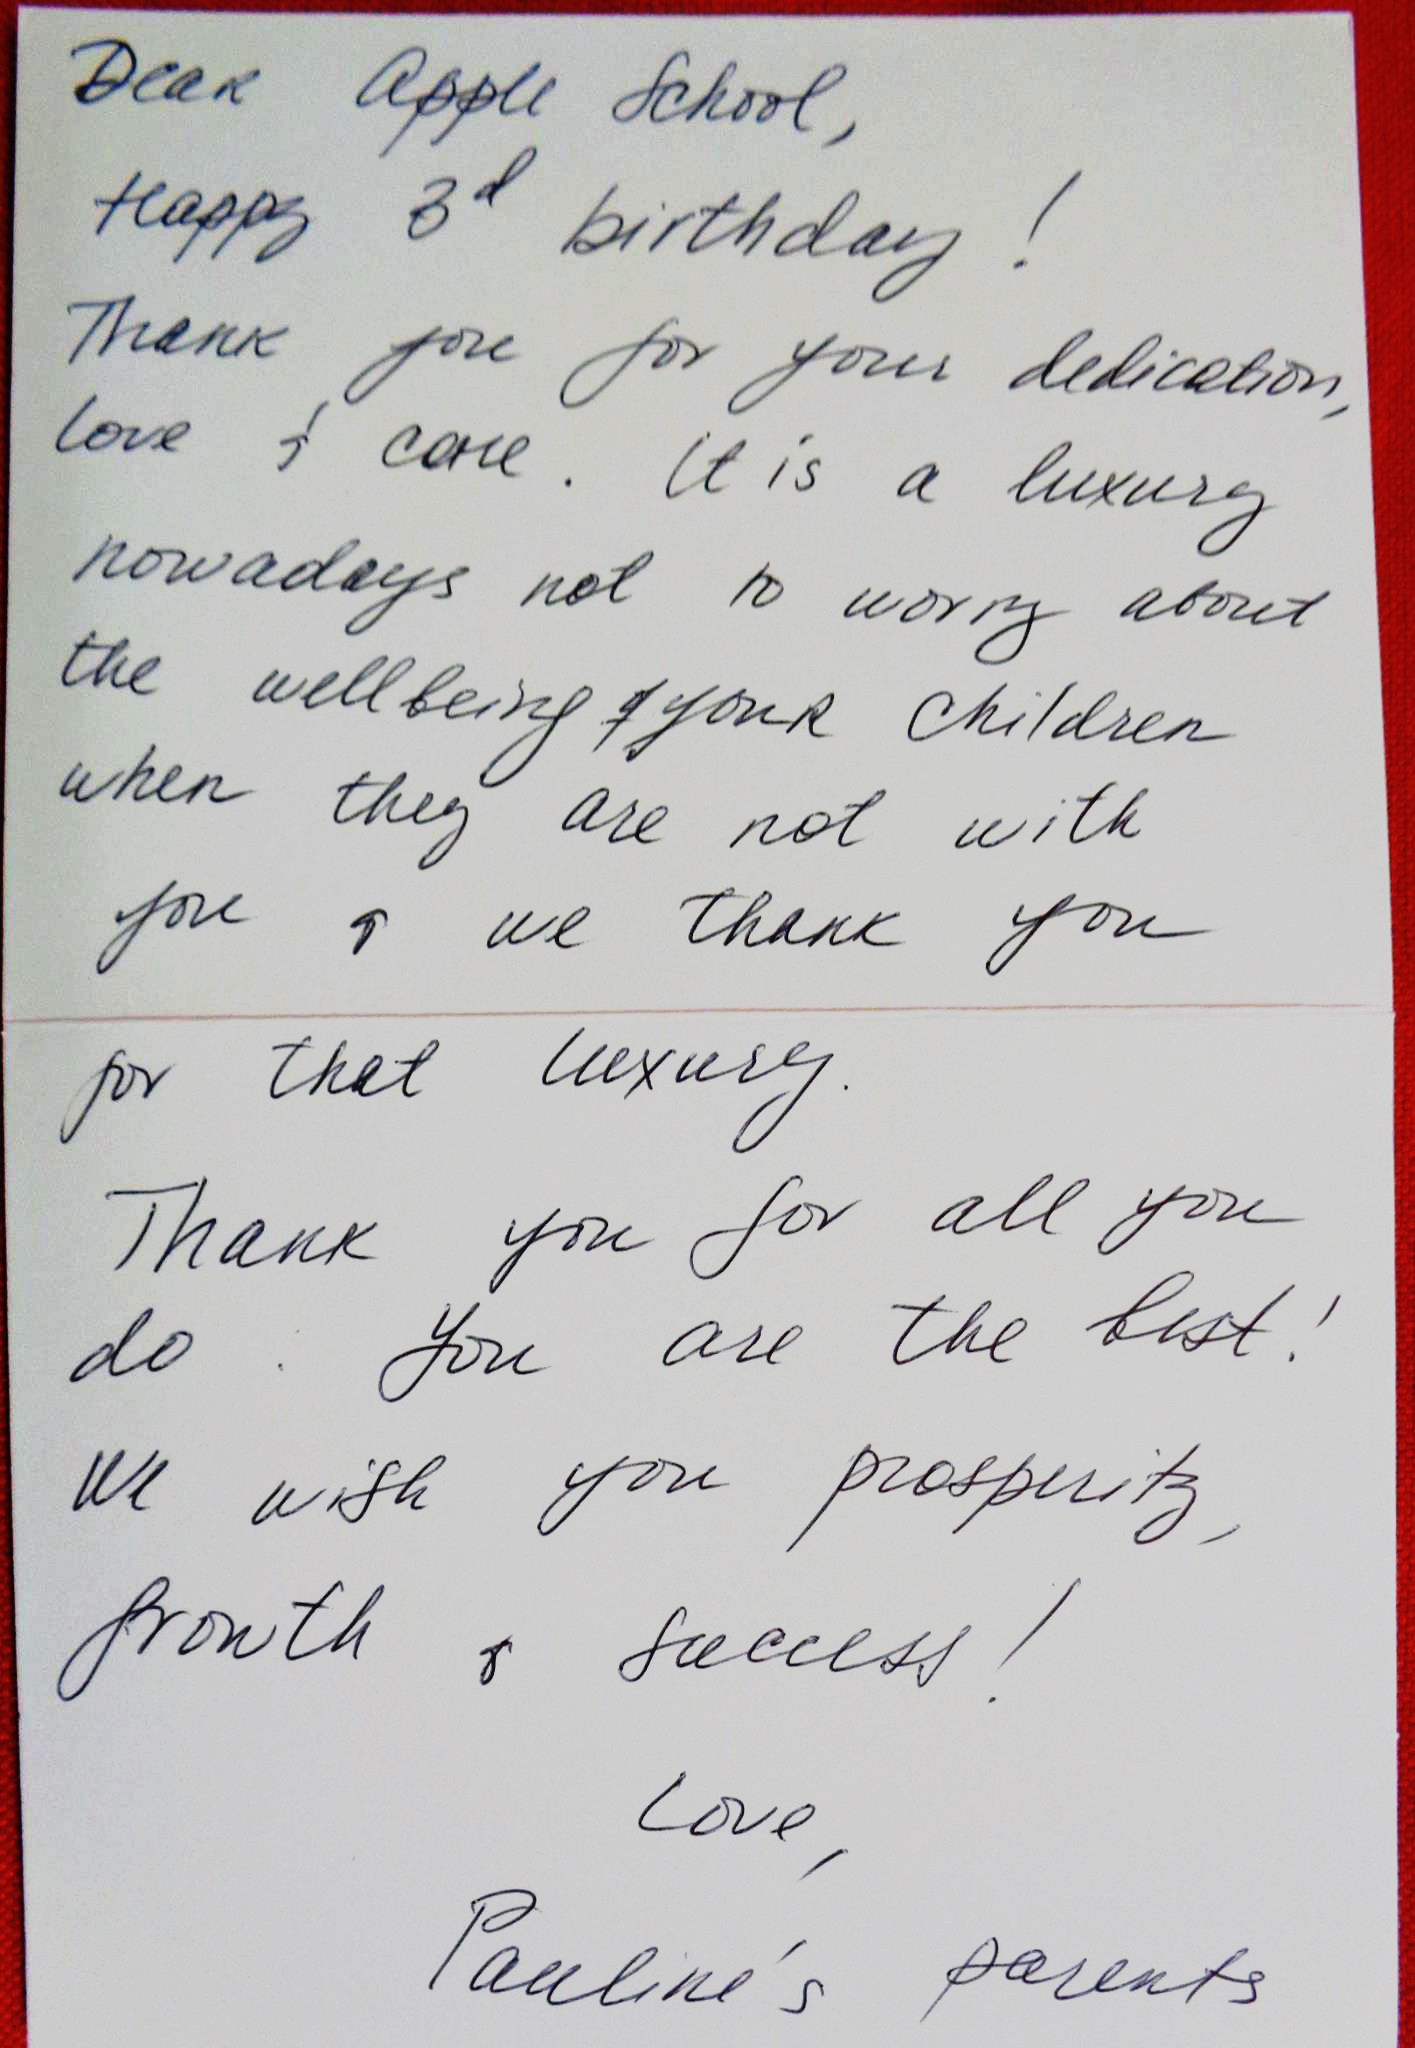 Dear Apple School,
Happy 3d birthday!
Thank you for your dedication,
love & care. It is a luxury
nowadays not to worry about
the wellbeing of your children
when they are not with
you & we thank you
for that luxury.
Thank you for all you
do. You are the best!
We wish you prosperity,
growth & success!
Love,
Pauline's parents